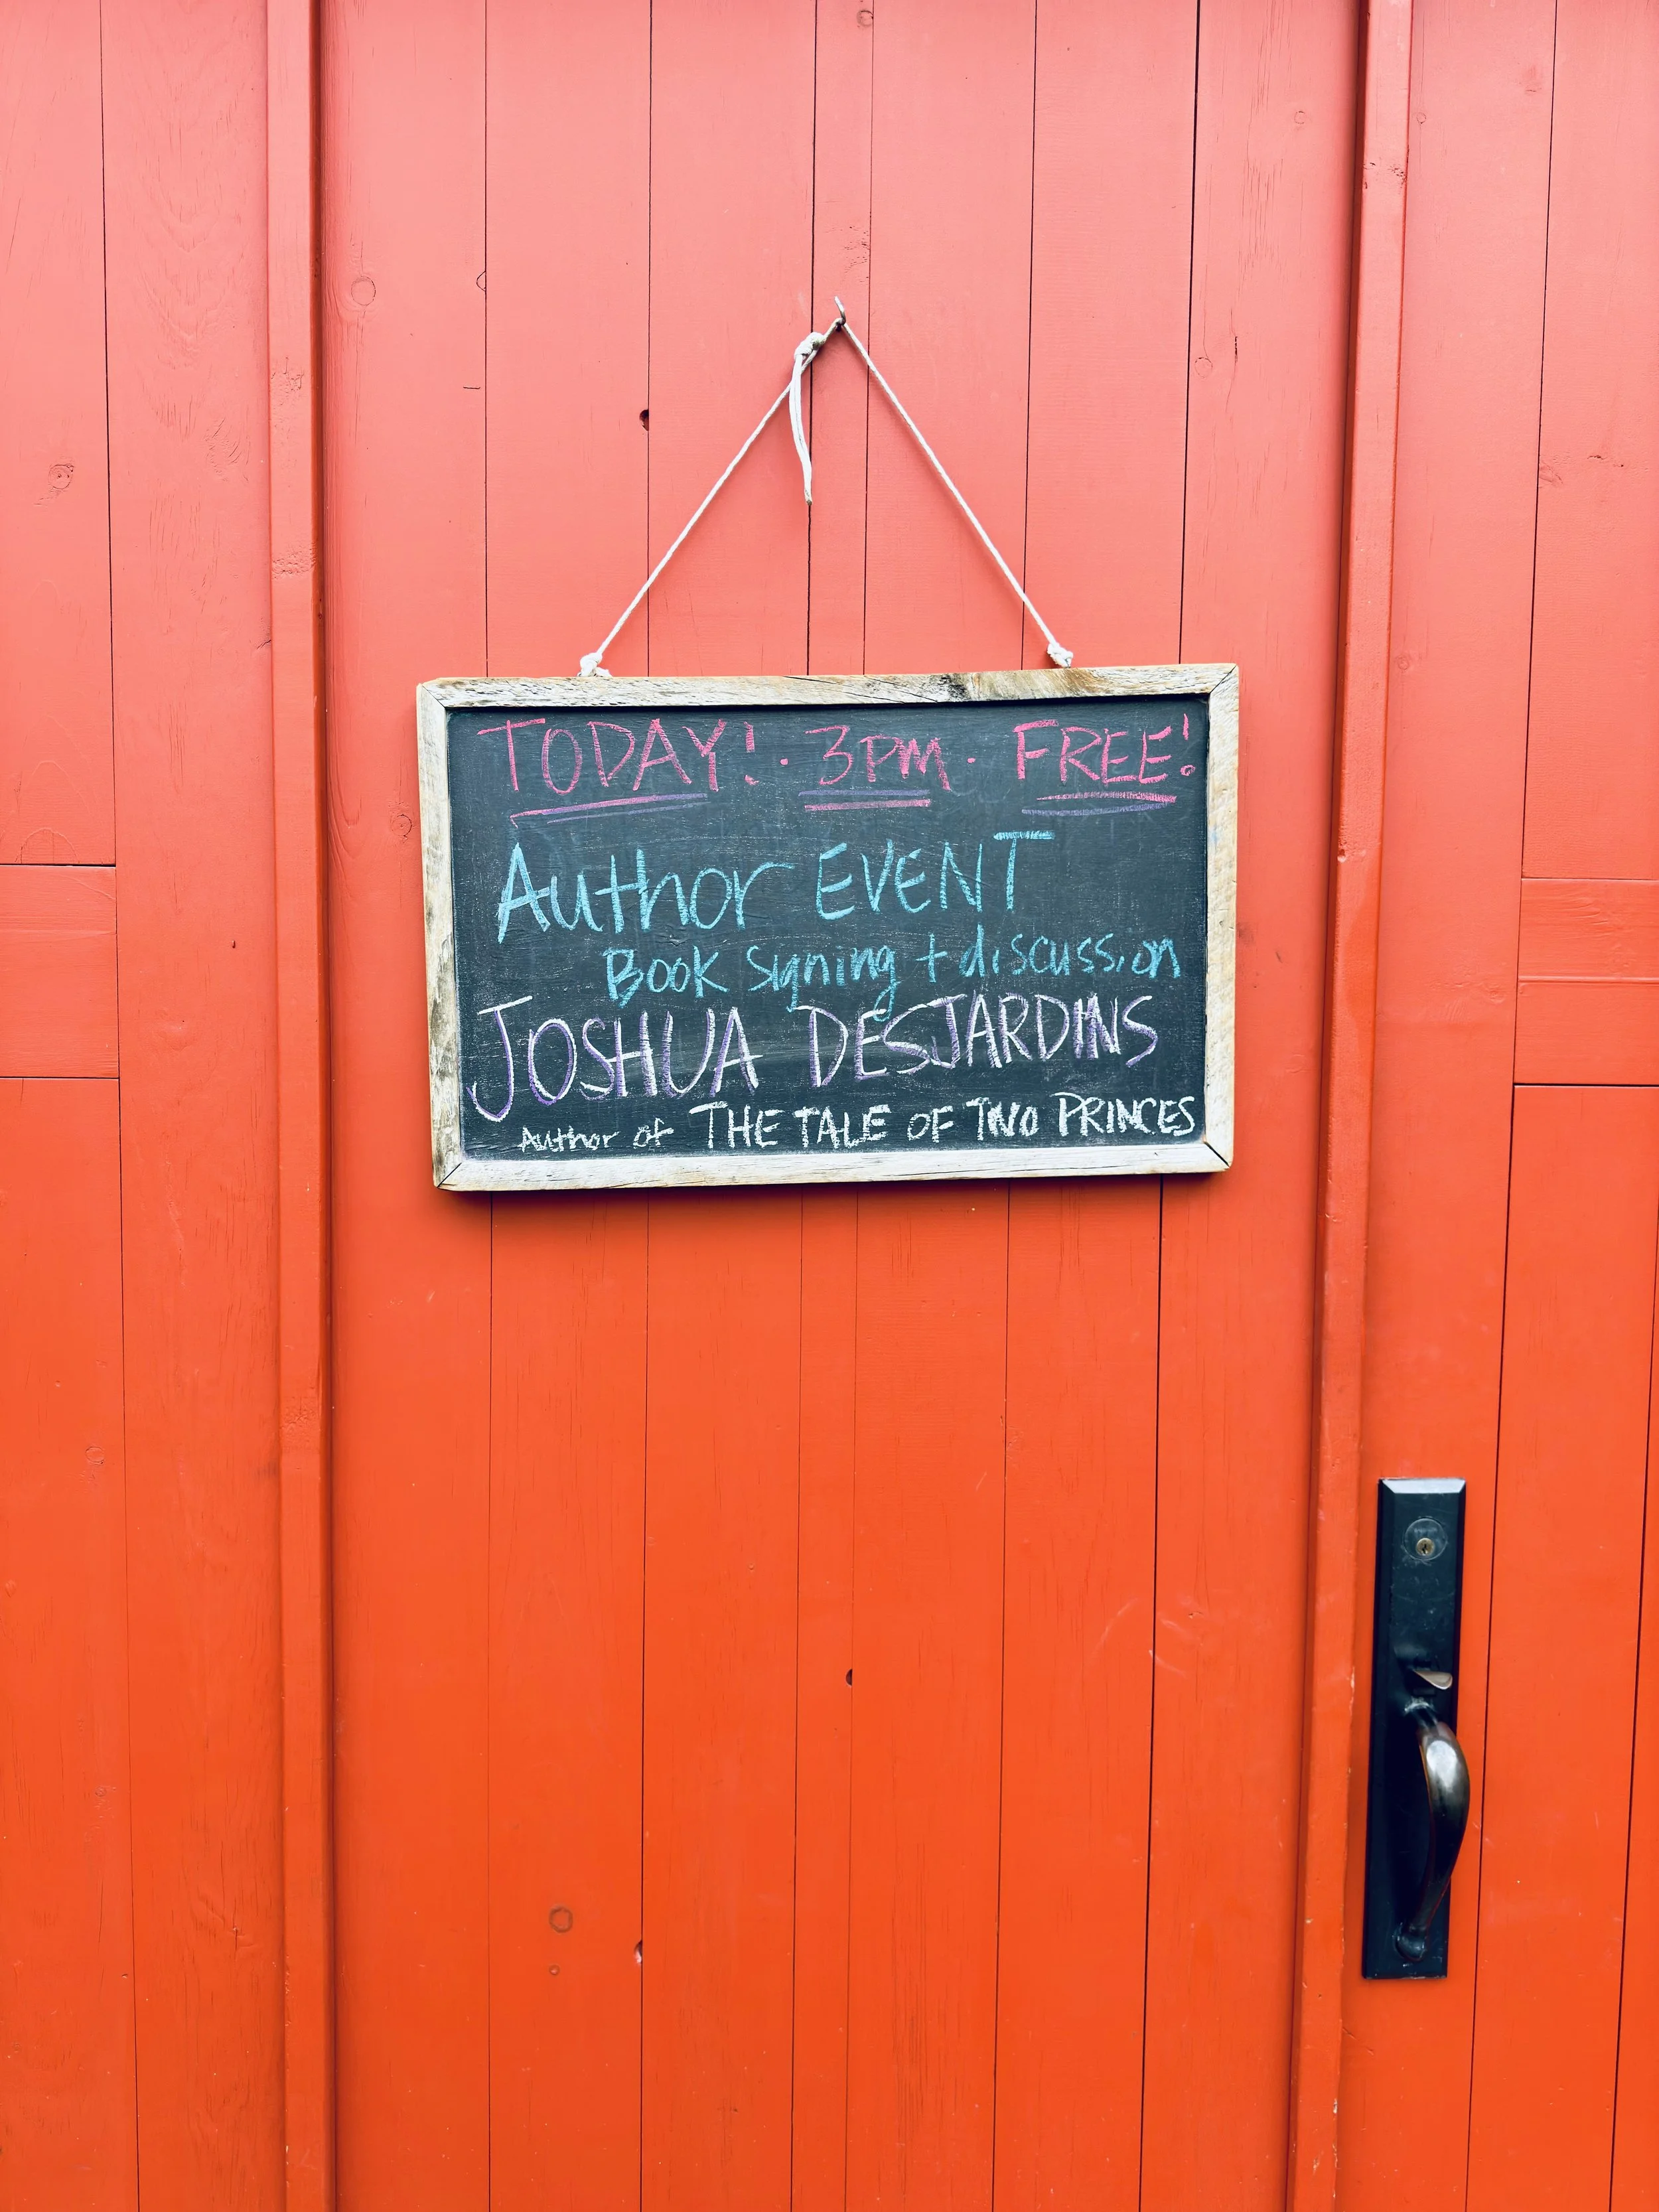 TODAY! · 3PM · FREE!
Author EVENT
Book Signing + discussion
JOSHUA DESJARDINS
Author of THE TALE OF TWO PRINCES